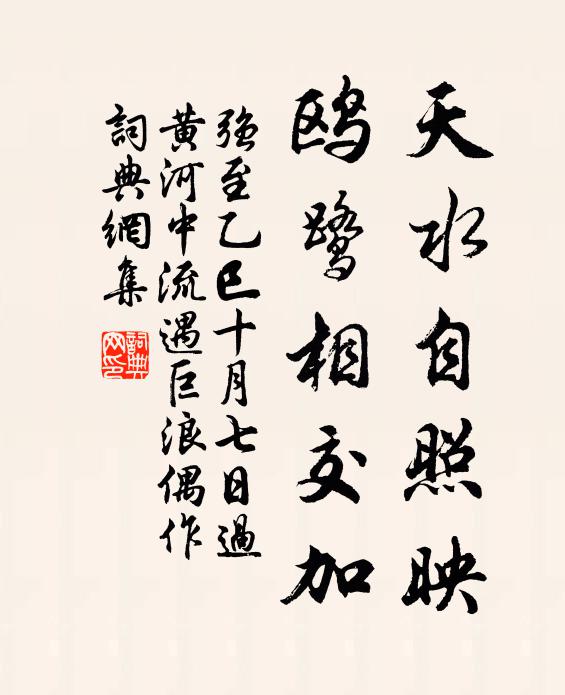 天水自照映
鸥鹭相交加
强至乙巳十月七日過
黄河中流遇巨浪偶作
詞典網集
詞典
网印